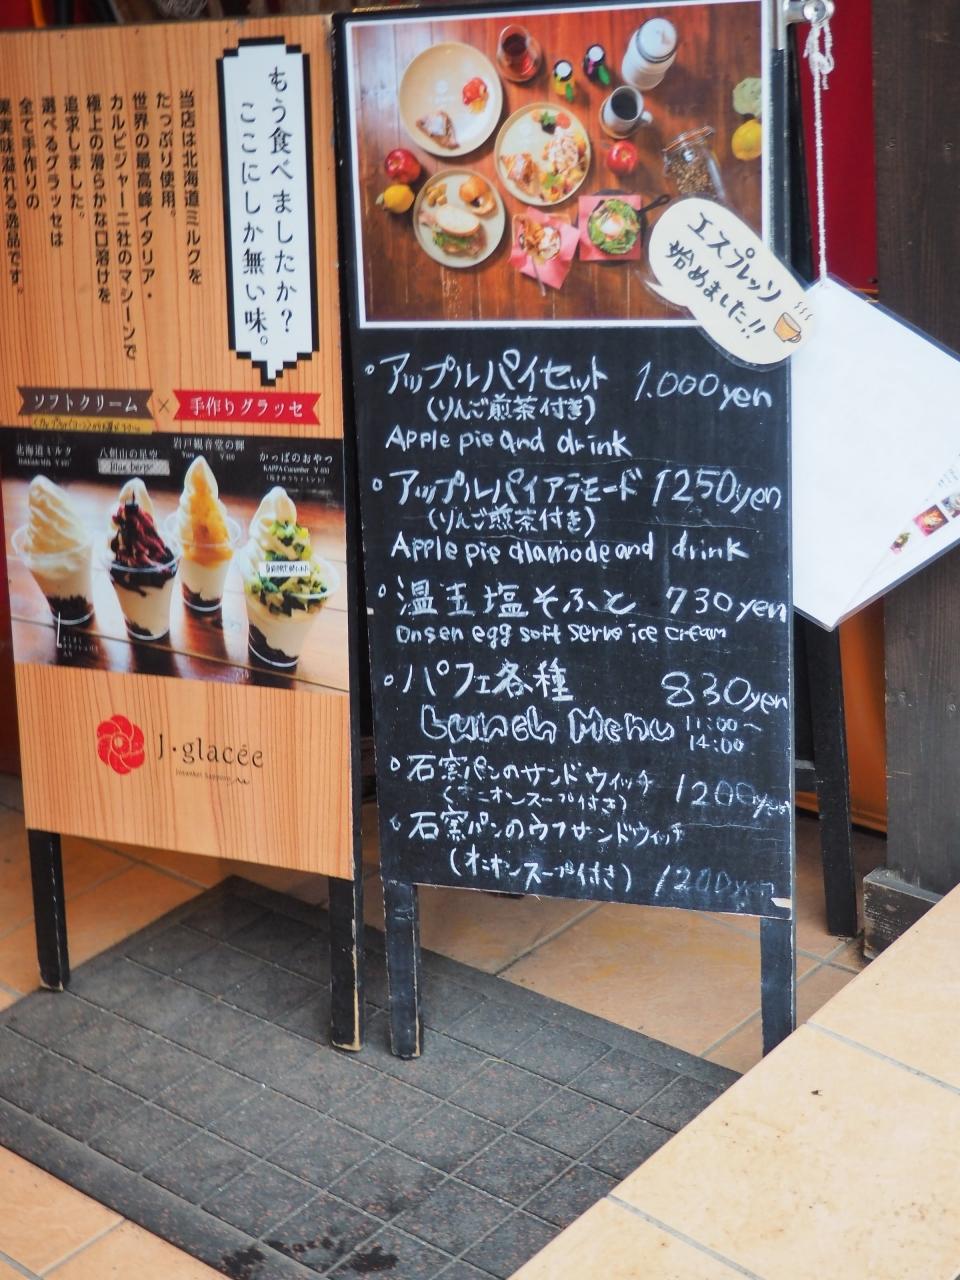 もう食べましたか？
ここにしか無い味。
当店は北海道ミルクを
たっぷり使用。
世界の最高峰イタリア・
カルピジャーニ社のマシーンで
極上の滑らかな口溶けを
追求しました。
選べるグラッセは
全て手作りの
果実味溢れる逸品です。
ソフトクリーム × 手作りグラッセ
北海道ミルク
八剣山の星空
blue berry
岩戸観音堂の輝
かっぱのおやつ
KAPPA Cucumber ¥400
J・glacée
エスプレッソ
始めました!!
アップルパイセット 1.000yen
(りんご煎茶付き)
Apple pie and drink
アップルパイアラモード 1250yen
(りんご煎茶付き)
Apple pie alamode and drink
温玉塩そふと 730yen
onsen egg soft serve ice cream
パフェ各種 830yen
Lunch Menu 11:00〜
14:00
石窯パンのサンドウィッチ 1200yen
(オニオンスープ付き)
石窯パンのウフサンドウィッチ
(オニオンスープ付き) 1200yen